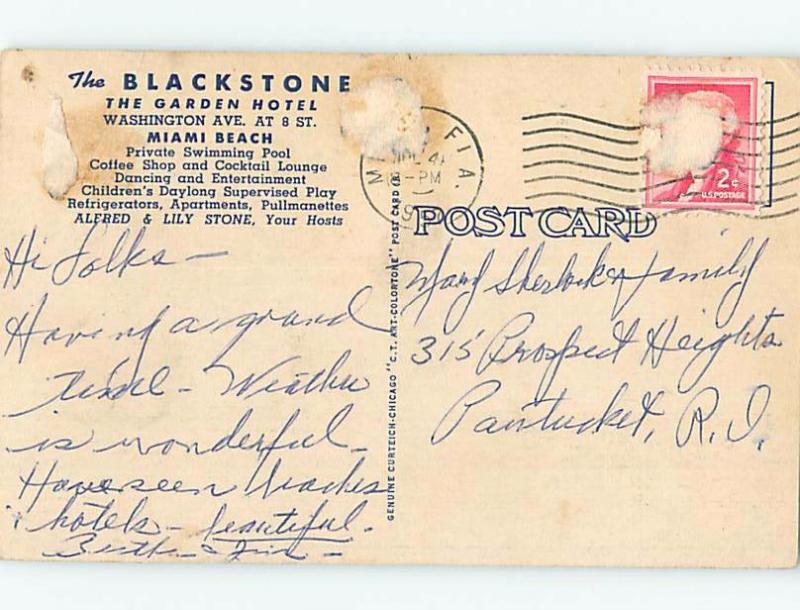 The BLACKSTONE
THE GARDEN HOTEL
WASHINGTON AVE. AT 8 ST.
MIAMI BEACH
Private Swimming Pool
Coffee Shop and Cocktail Lounge
Dancing and Entertainment
Children's Daylong Supervised Play
Refrigerators, Apartments, Pullmanettes
ALFRED & LILY STONE, Your Hosts
Hi folks —
Having a grand
time — Weather
is wonderful —
Have seen beaches
hotels — beautiful.
GENUINE CURTEICH-CHICAGO "C.T. ART-COLORTONE" POST CARD (R
FLA.
PM
2¢
U.S. POSTAGE
POST CARD
Mary Sherlock & Family
315 Prospect Heights
Pawtucket, R.I.